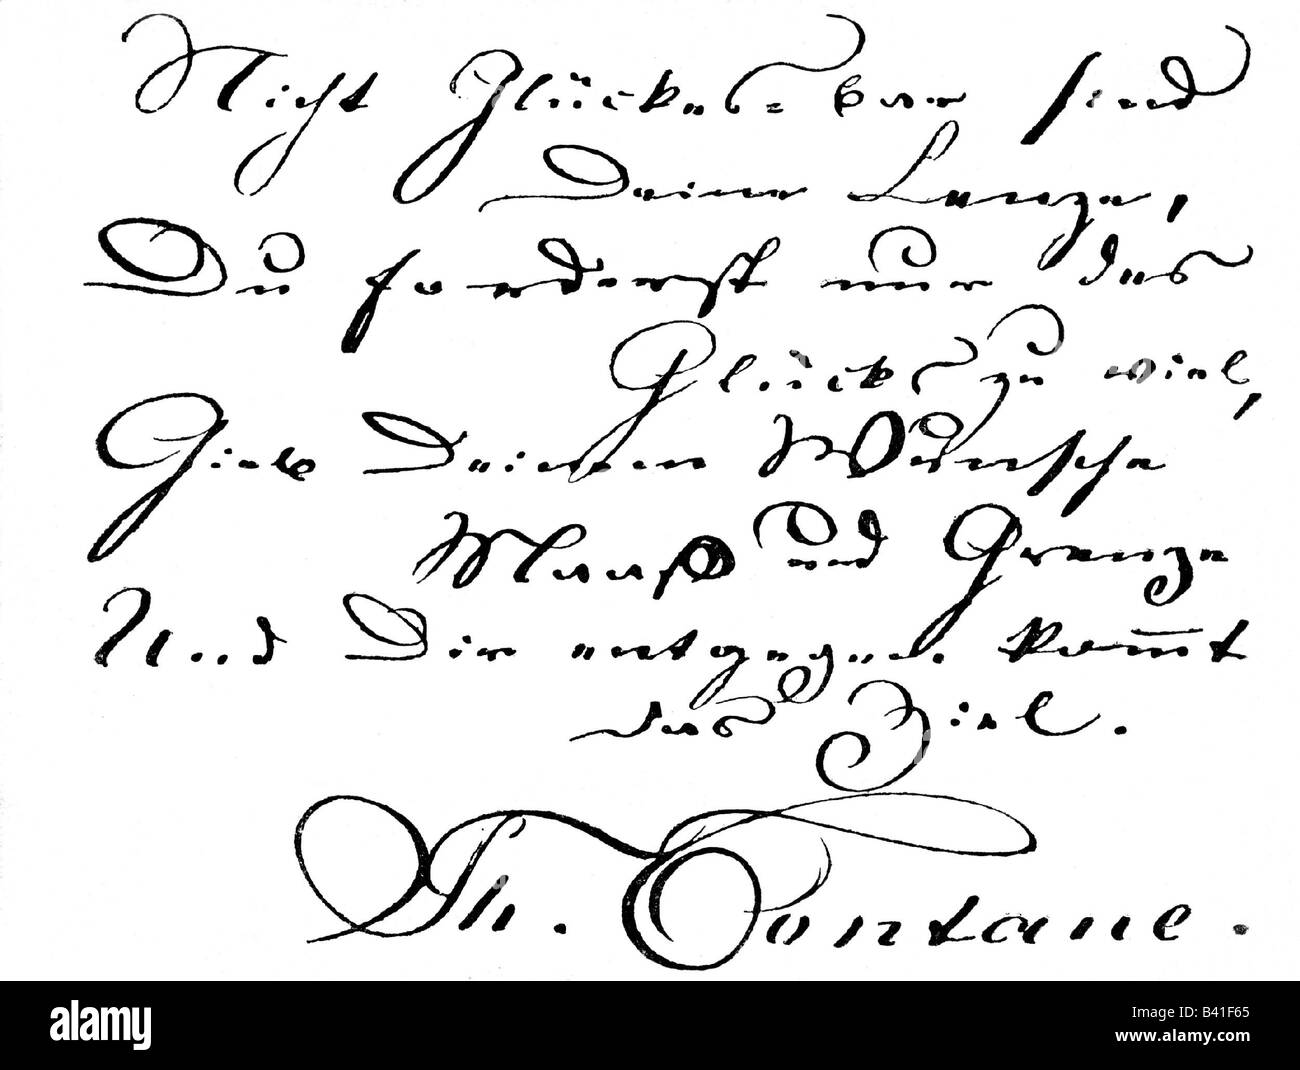 Nicht Glückes-bar sind
Deine Lenze,
Du forderst nur des
Glücks zu viel,
Gieb Deinem Wunsche
Maaß und Grenze
Und Dir entgegen kom̅t
das Ziel.
Th. Fontane.
alamy
Image ID: B41F65
www.alamy.com